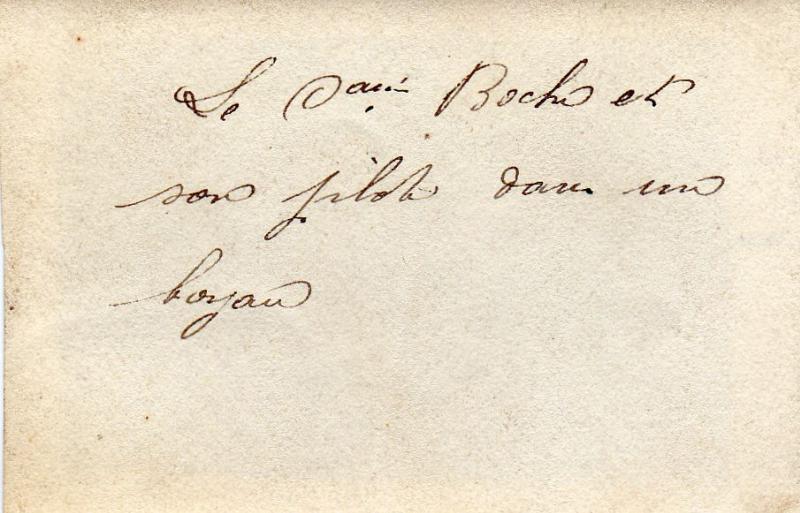 Le Boche et
son pilote dans un
boyau